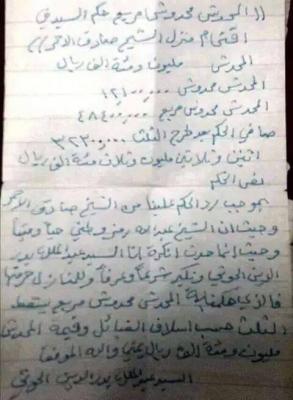 (( المحدش محدوش مربع حكم السيد في
اقتحام منزل الشيخ صادق الاحمر ))
المحدش مليون ومئة الف ريال
المحدش محدوش ١٢١٠٠٠٠٠
المحدش محدوش مربع ٤٨٤٠٠٠٠٠
صافي الحكم بعد طرح الثلث ٣٢٣٠٠٠٠٠
اثنين وثلاثين مليون وثلاث مئة الف ريال
نص الحكم
بموجب رد الحكم علينا من الشيخ صادق الاحمر
وحيث ان الشيخ عبدالله رمز وطني حياً وميتاً
وحيث انما حدث انكره انا السيد عبدالملك بدر
الدين الحوثي ونكير شرعاً وعرفاً وللمنازل حرمتها
المحدش محدوش مربع يسقط
الثلث حسب اسلاف القبائل وقيمة المحدش
مليون ومئة الف ريال يمني والله الموفق
السيد عبدالملك بدر الدين الحوثي